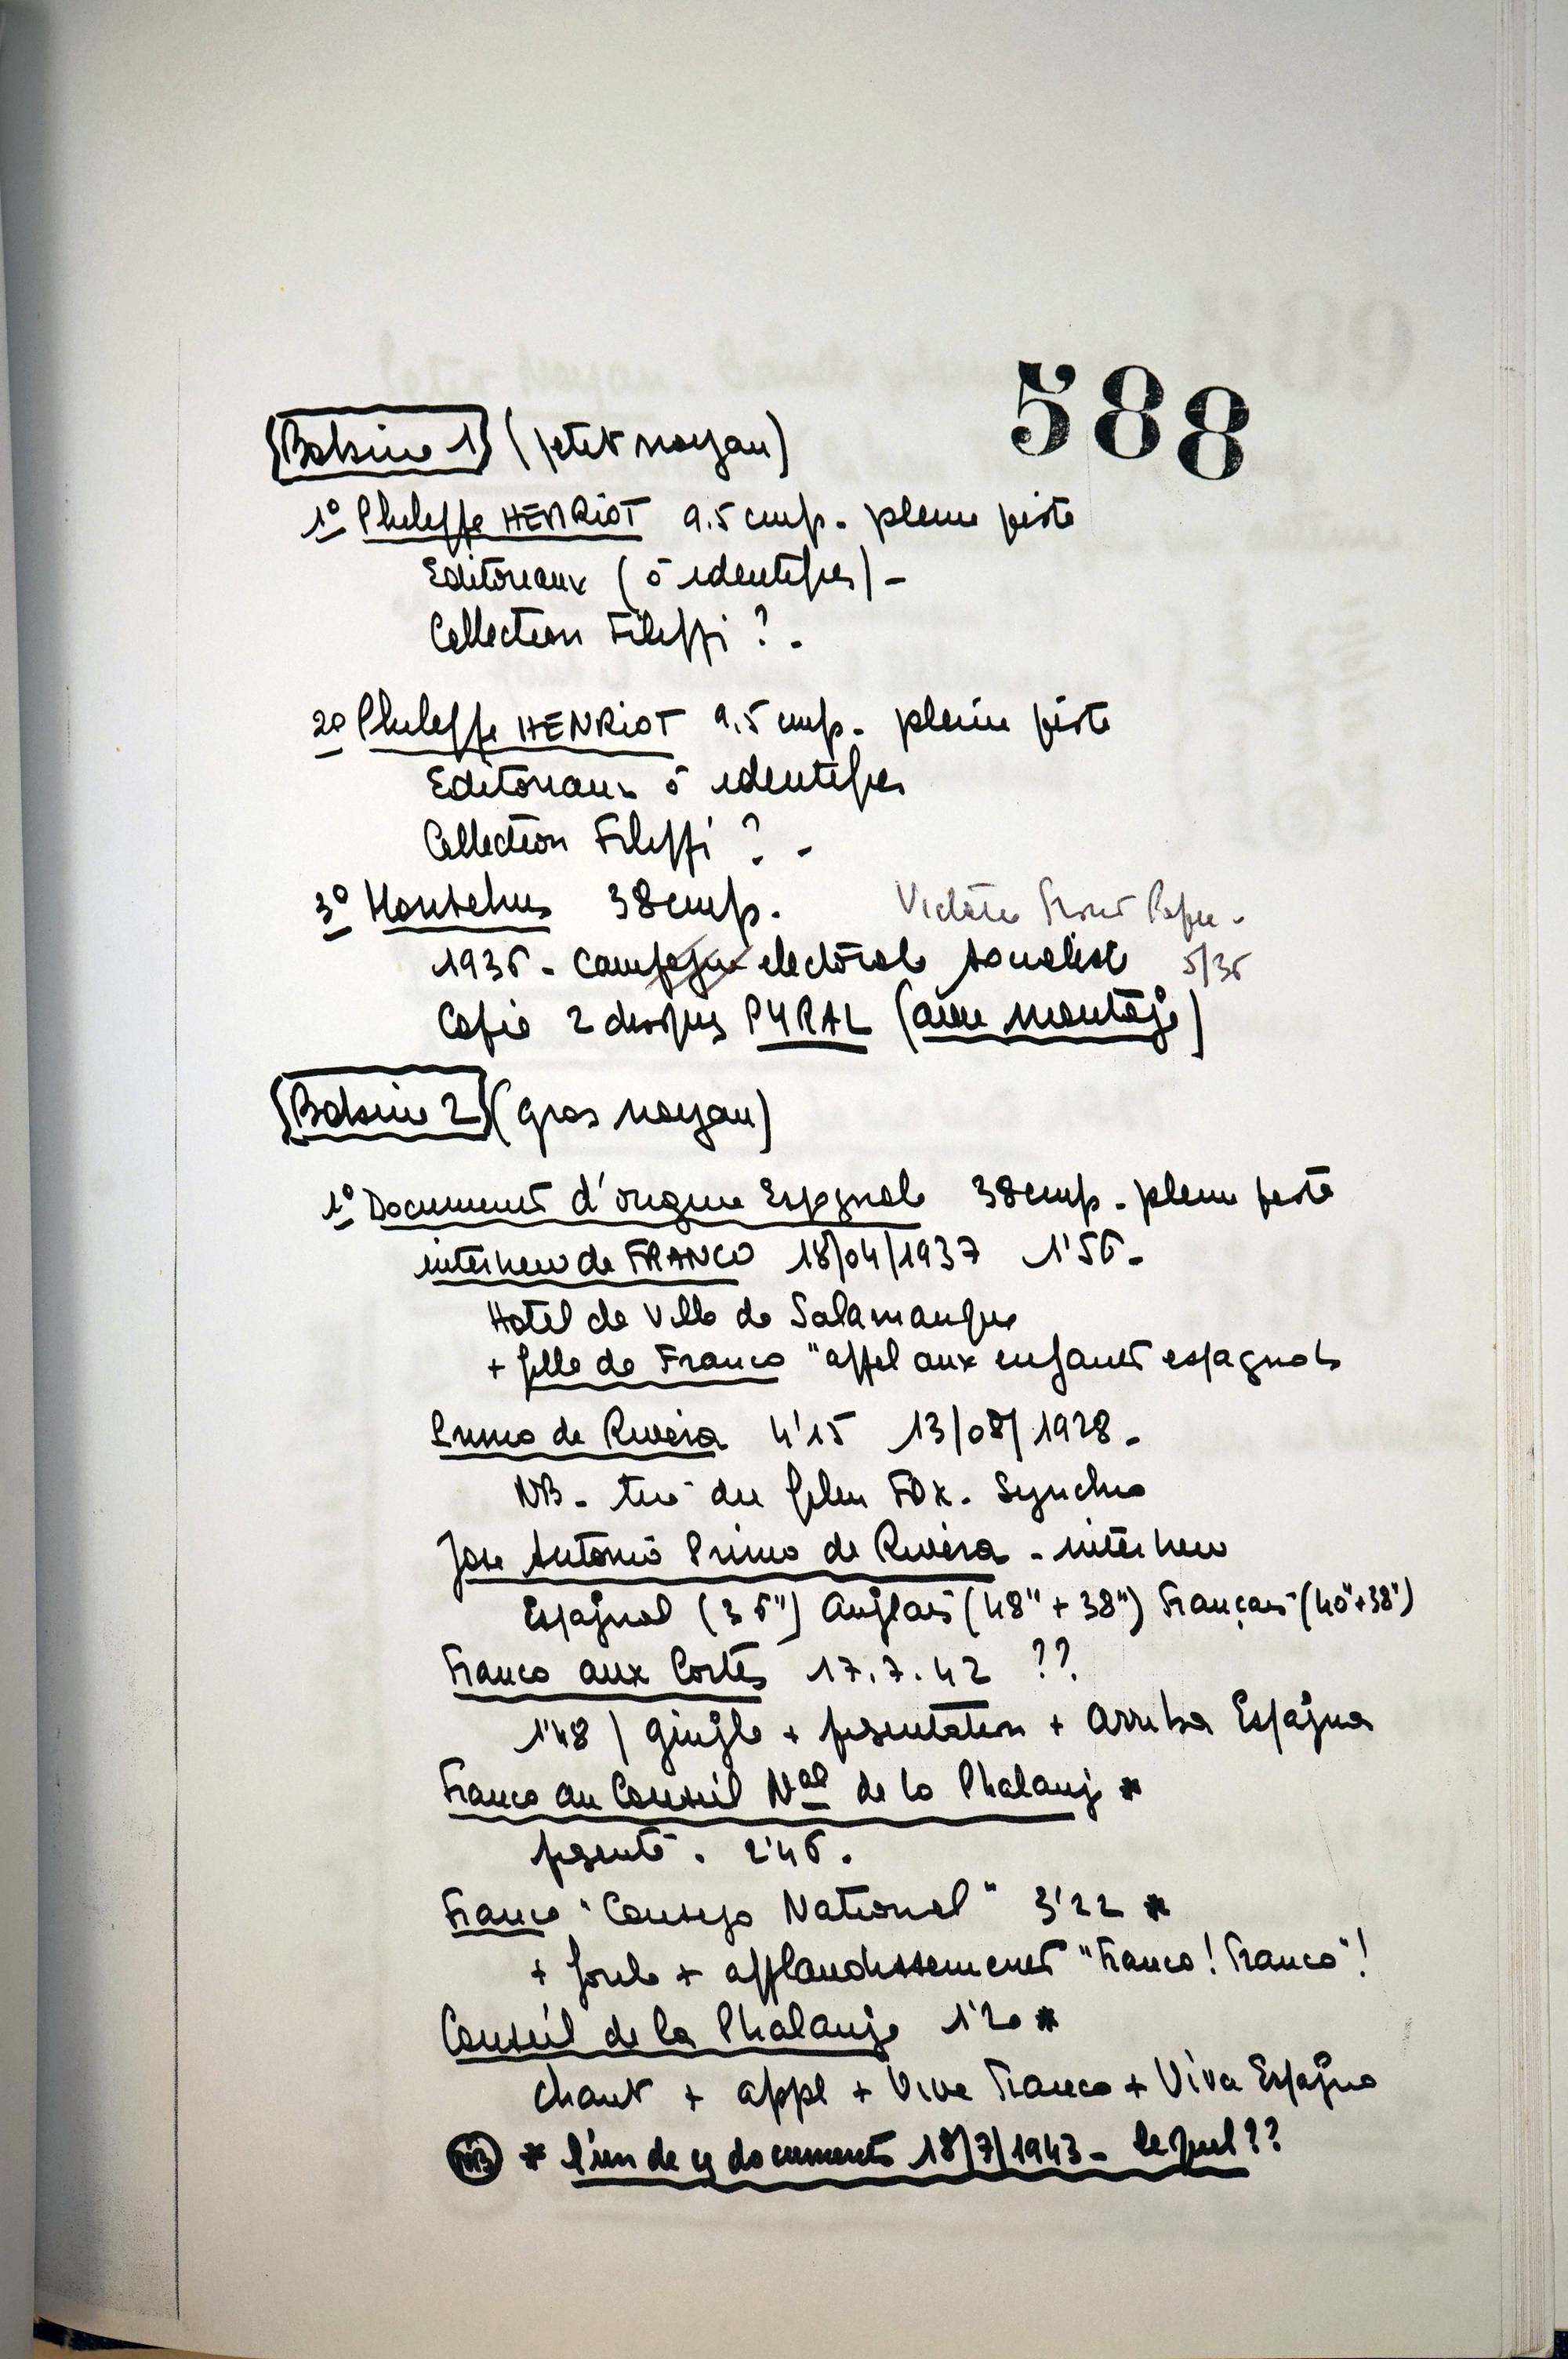 588
Bobine 1 (petit noyau)
1º Philippe HENRIOT 9.5 cmps. pleine piste
Editoriaux (à identifier) -
Collection Filippi ? -
2º Philippe HENRIOT 9.5 cmps. pleine piste
Editoriaux à identifier
Collection Filippi ? -
3º Montehus 38 cmps. Victoire Front Popu.
1936 - campagne electorale socialiste 5/36
Copie 2 disques PYRAL (avec montage)
Bobine 2 (gros noyau)
1º Document d'origine Espagnole 38 cmps. pleine piste
interview de FRANCO 18/04/1937 1'56 -
Hotel de Ville de Salamanque
+ fille de Franco "appel aux enfants espagnols
Primo de Rivera 4'15 13/08/1928 -
NB - tiré du film FOX. Synchro
Jose Antonio Primo de Rivera - interview
Espagnol (36") Anglais (48" + 38") Français (40"+38")
Franco aux Cortès 17.7.42 ??
1'48 / gingle + présentation + Arriba Espagna
Franco au Conseil Nal de la Phalange *
présenté . 2'46 .
Franco "Consejo National" 3'22 *
+ foule + applaudissements "Franco ! Franco" !
Conseil de la Phalange 1'20 *
chant + appl + Vive Franco + Viva Espagna
NB * l'un de ces documents 18/7/1943 - lequel ??